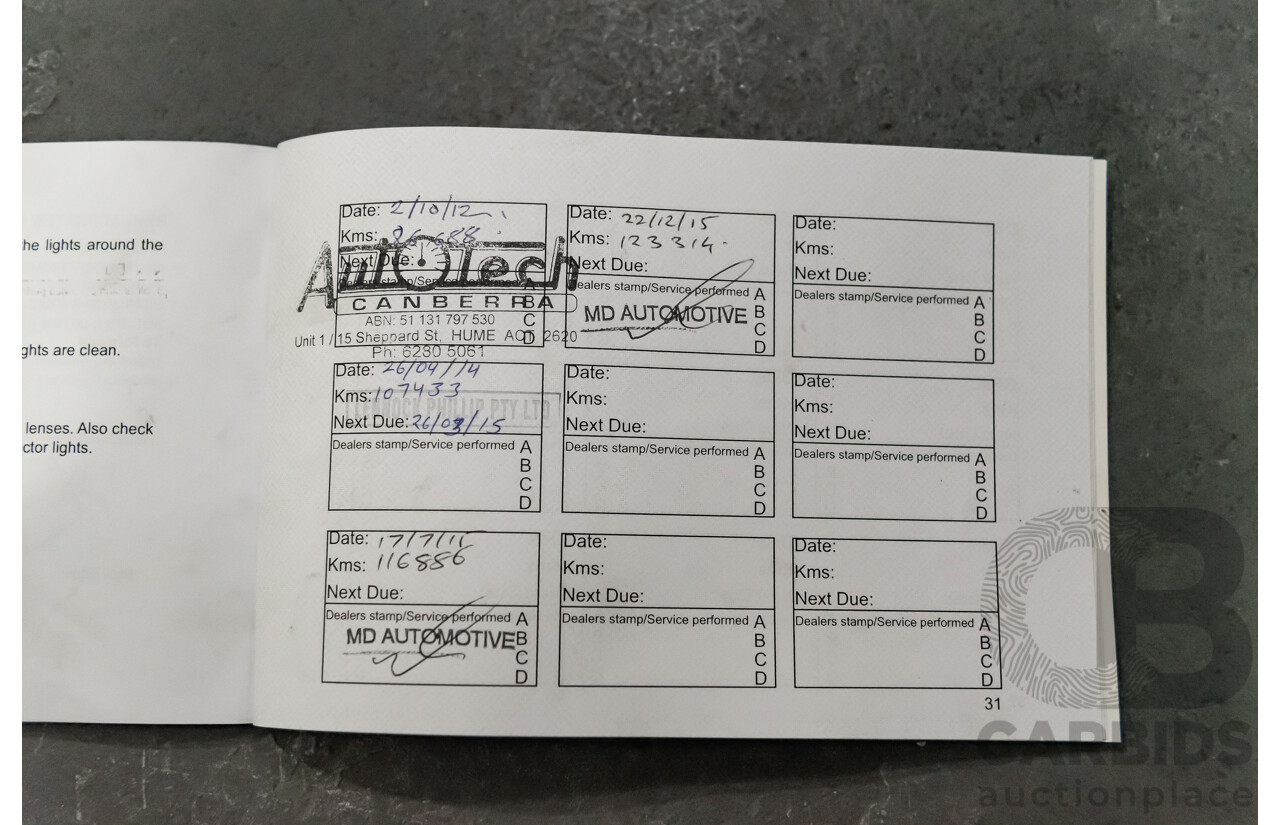 he lights around the
ghts are clean.
lenses. Also check
ctor lights.
Date: 2/10/12
Kms:
Next Due:
AutoTech
CANBERRA
ABN: 51 131 797 530
Unit 1 / 15 Sheppard St, HUME ACT 2620
Ph: 6280 5061
A
B
C
D
Date: 26/04/14
Kms: 107433
Next Due: 26/03/15
PHILLIP PTY LTD
Dealers stamp/Service performed A
B
C
D
Date: 17/7/15
Kms: 116886
Next Due:
Dealers stamp/Service performed A
MD AUTOMOTIVE B
C
D
Date: 22/12/15
Kms: 123314
Next Due:
Dealers stamp/Service performed A
MD AUTOMOTIVE B
C
D
Date:
Kms:
Next Due:
Dealers stamp/Service performed A
B
C
D
Date:
Kms:
Next Due:
Dealers stamp/Service performed A
B
C
D
Date:
Kms:
Next Due:
Dealers stamp/Service performed A
B
C
D
Date:
Kms:
Next Due:
Dealers stamp/Service performed A
B
C
D
Date:
Kms:
Next Due:
Dealers stamp/Service performed A
B
C
D
31
CB
CARBIDS
auctionplace